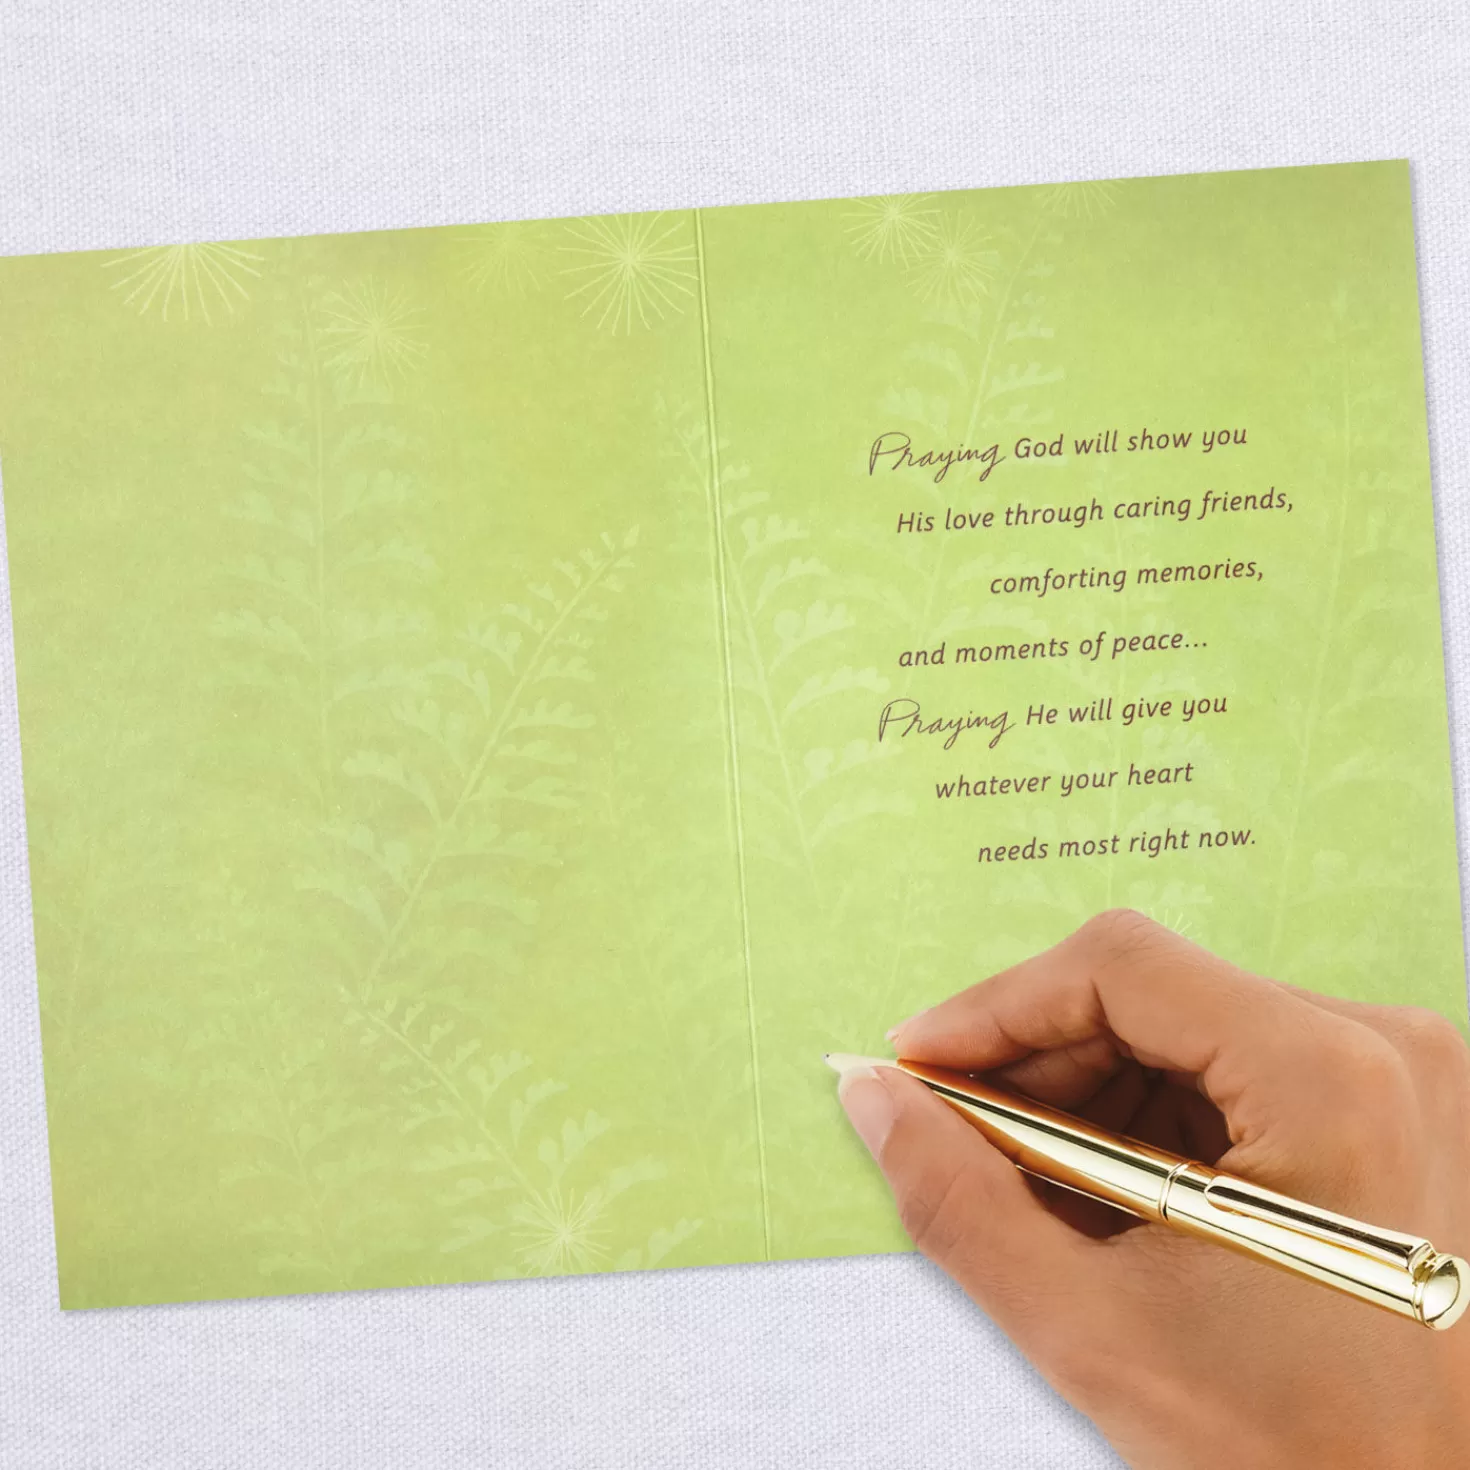 Praying God will show you
His love through caring friends,
comforting memories,
and moments of peace...
Praying He will give you
whatever your heart
needs most right now.